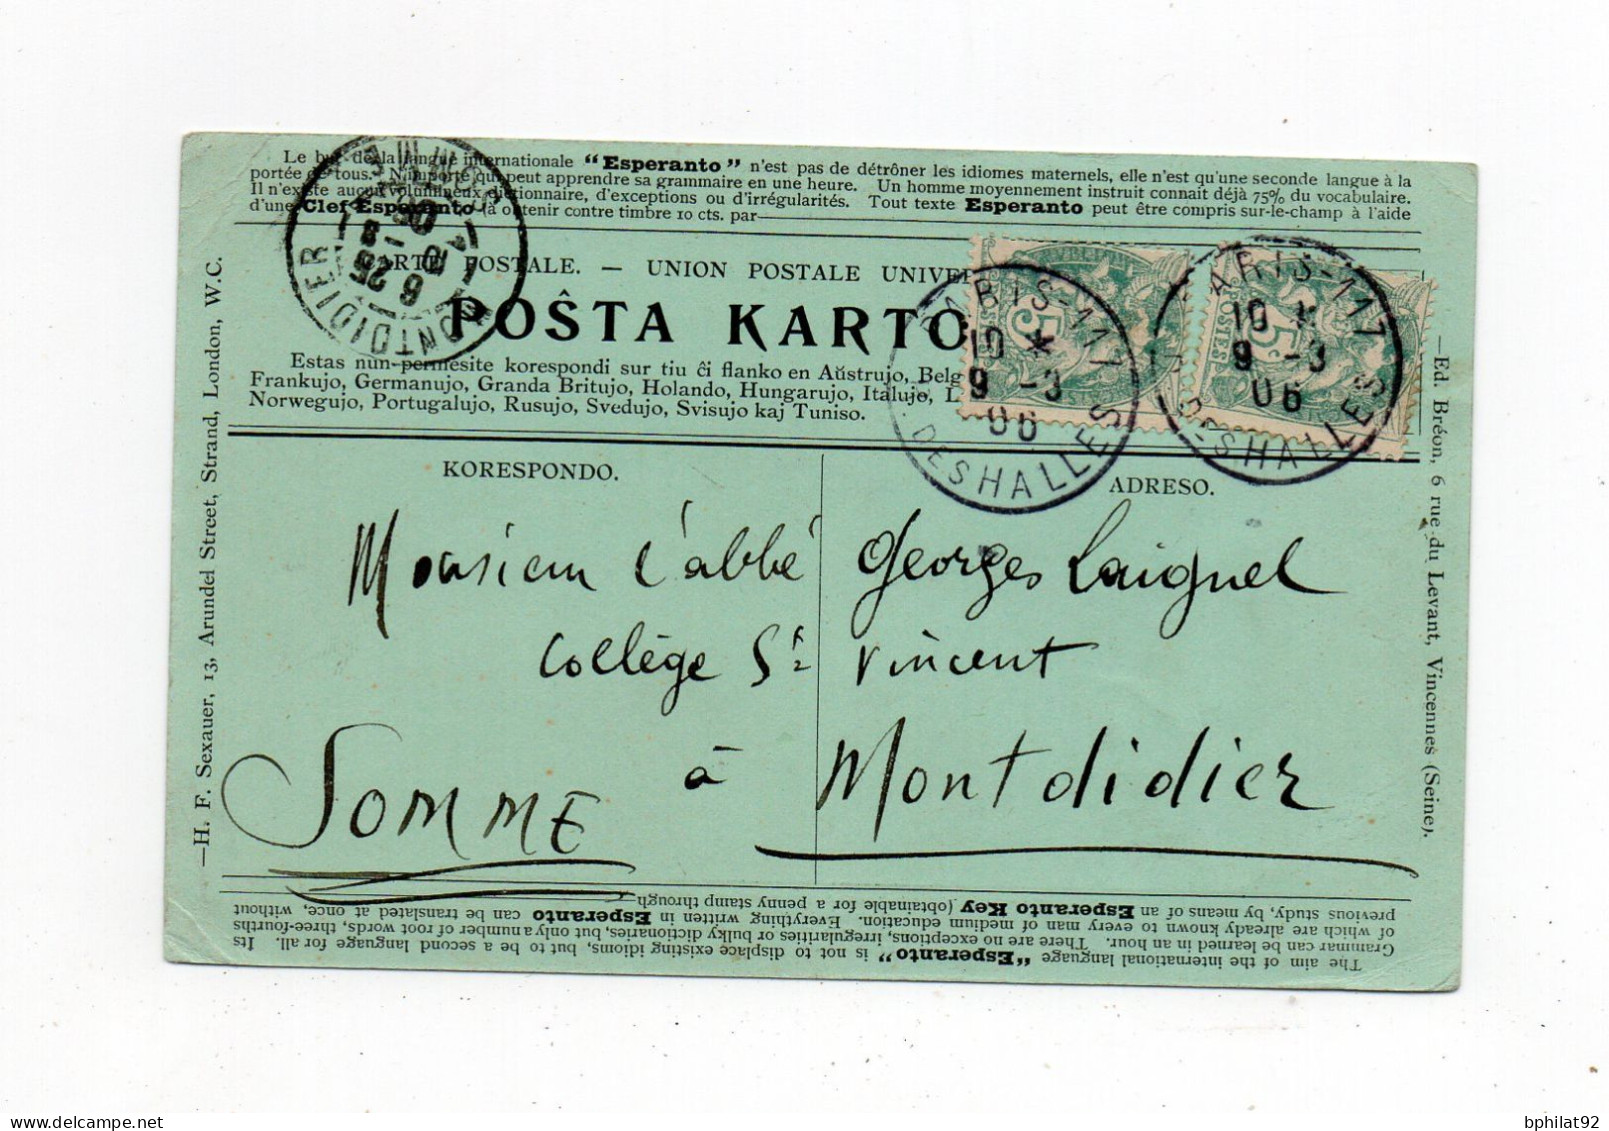 Le but de la langue internationale “Esperanto” n'est pas de détrôner les idiomes maternels, elle n'est qu'une seconde langue à la
portée de tous. N'importe qui peut apprendre sa grammaire en une heure. Un homme moyennement instruit connait déjà 75% du vocabulaire.
Il n'existe aucun volumineux dictionnaire, d'exceptions ou d'irrégularités. Tout texte Esperanto peut être compris sur-le-champ à l'aide
d'une Clef Esperanto (à obtenir contre timbre 10 cts. par
CARTE POSTALE. — UNION POSTALE
POŜTA KARTO
Estas nun permesite korespondi sur tiu ĉi flanko en Aŭstrujo,
Frankujo, Germanujo, Granda Britujo, Holando, Hungarujo, Italujo,
Norwegujo, Portugalujo, Rusujo, Svedujo, Svisujo kaj Tuniso.
MONTDIDIER
SOMME
6 25
PARIS-117
10 *
9 -3
06
DES HALLES
PARIS-117
10 *
9 -3
06
DES HALLES
5
POSTES
5
KORESPONDO.
ADRESO.
Monsieur l'abbé Georges Laignel
Collège St Vincent
à Montdidier
SOMME
—H. F. Sexauer, 13, Arundel Street, Strand, London, W.C.
—Ed. Bréon, 6 rue du Levant, Vincennes (Seine).
The aim of the international language “Esperanto” is not to displace existing idioms, but to be a second language for all. Its
Grammar can be learned in an hour. There are no exceptions, irregularities or bulky dictionaries, but only a number of root words, three-fourths
of which are already known to every man of medium education. Everything written in Esperanto can be translated at once, without
previous study, by means of an Esperanto Key (obtainable for a penny stamp through
bphilat92